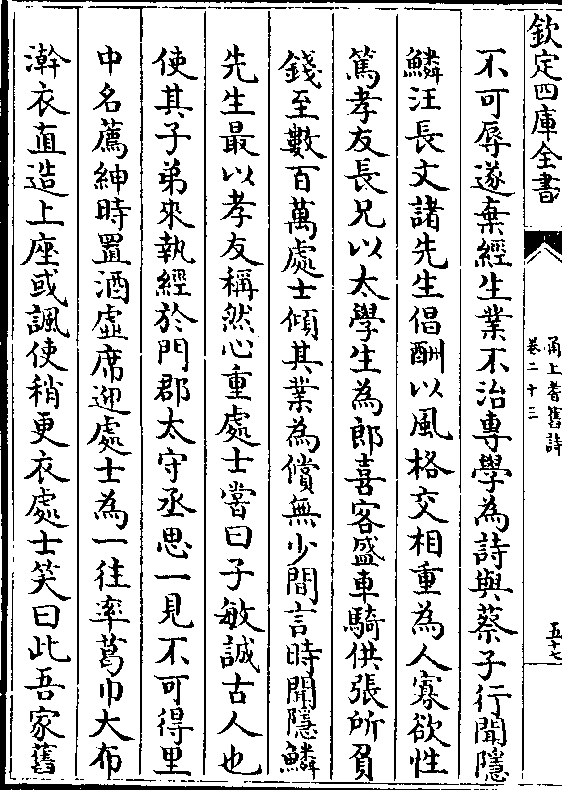 欽定四庫全書
甬上耆舊詩
卷二十三
五十七
不可辱遂棄經生業不治專學為詩與蔡子行聞隱
鱗汪長文諸先生倡酬以風格交相重為人寡欲性
篤孝友長兄以太學生為郎喜客盛車騎供張所負
錢至數百萬處士傾其業為償無少間言時聞隱鱗
先生最以孝友稱然心重處士嘗曰子敏誠古人也
使其子弟來執經於門郡太守丞思一見不可得里
中名薦紳時置酒虛席迎處士為一往率葛巾大布
澣衣直造上座或諷使稍更衣處士笑曰此吾家舊